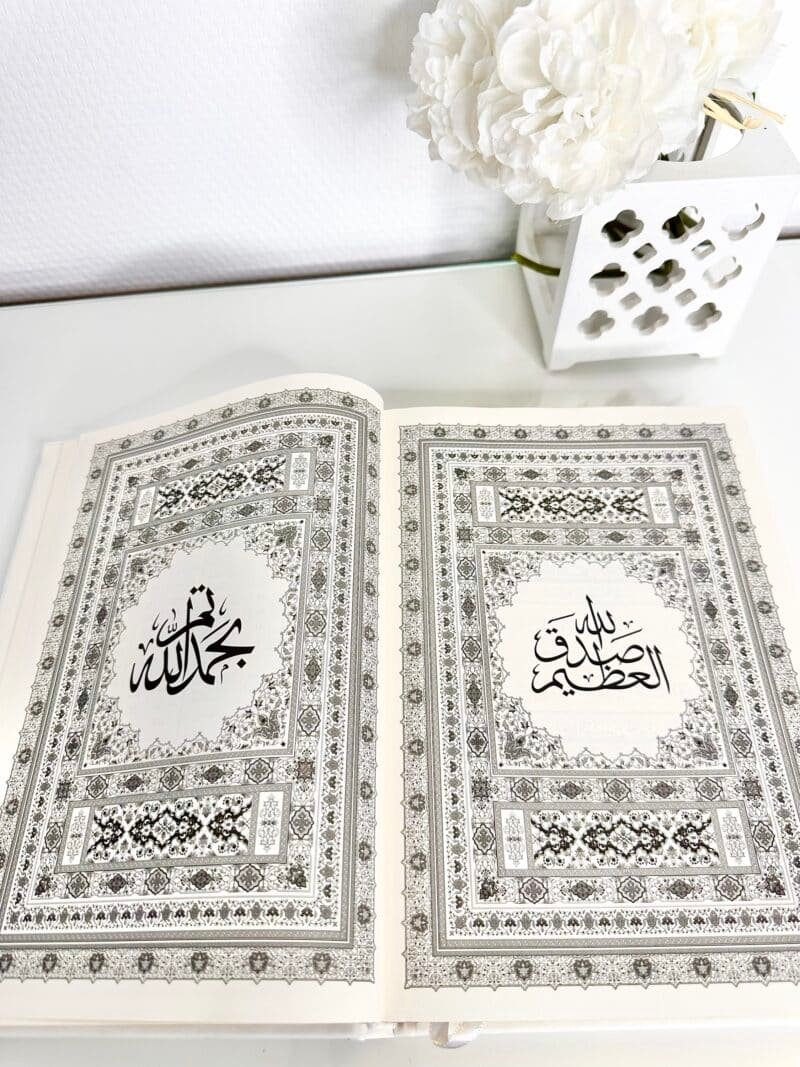 صدق الله
العظيم
تم
بحمد الله